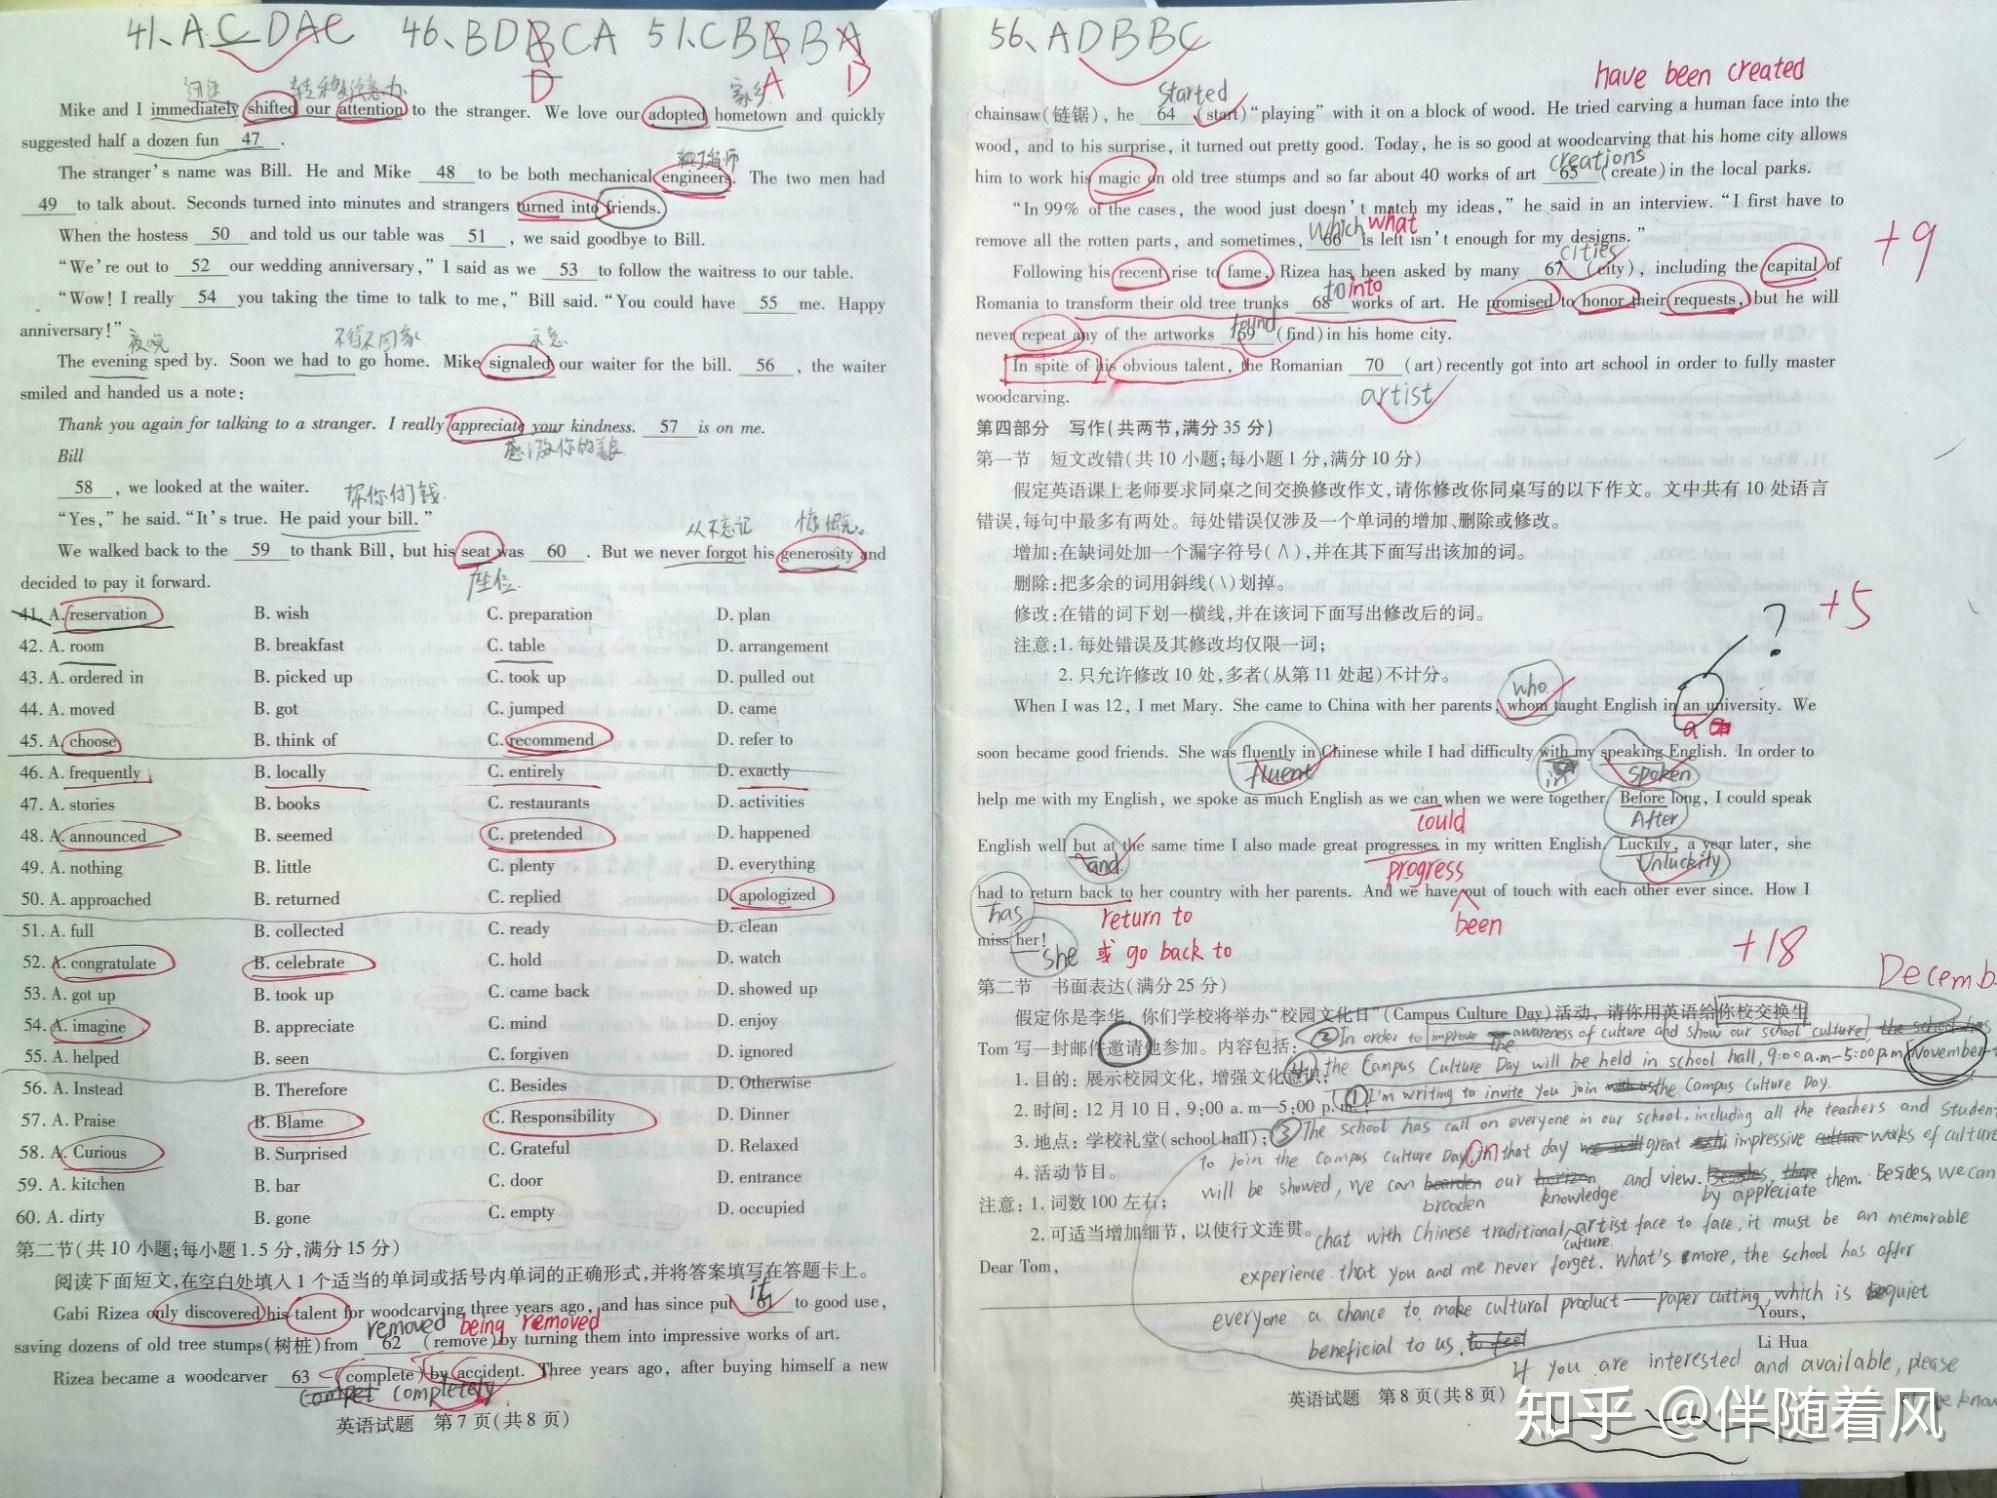 41、ACDAC 46、BDBCA 51、CBBBA
D A D
转移注意力 家乡
Mike and I immediately shifted our attention to the stranger. We love our adopted hometown and quickly
suggested half a dozen fun 47 .
The stranger's name was Bill. He and Mike 48 to be both mechanical engineers. The two men had
49 to talk about. Seconds turned into minutes and strangers turned into friends.
When the hostess 50 and told us our table was 51 , we said goodbye to Bill.
“We're out to 52 our wedding anniversary,” I said as we 53 to follow the waitress to our table.
“Wow! I really 54 you taking the time to talk to me,” Bill said. “You could have 55 me. Happy
anniversary!”
夜晚 不得不回家 示意
The evening sped by. Soon we had to go home. Mike signaled our waiter for the bill. 56 , the waiter
smiled and handed us a note:
Thank you again for talking to a stranger. I really appreciate your kindness. 57 is on me.
Bill
58 , we looked at the waiter.
替你付了钱
“Yes,” he said. “It's true. He paid your bill.”
从不忘记 慷慨
We walked back to the 59 to thank Bill, but his seat was 60 . But we never forgot his generosity and
decided to pay it forward.
座位
41. A. reservation B. wish C. preparation D. plan
42. A. room B. breakfast C. table D. arrangement
43. A. ordered in B. picked up C. took up D. pulled out
44. A. moved B. got C. jumped D. came
45. A. choose B. think of C. recommend D. refer to
46. A. frequently B. locally C. entirely D. exactly
47. A. stories B. books C. restaurants D. activities
48. A. announced B. seemed C. pretended D. happened
49. A. nothing B. little C. plenty D. everything
50. A. approached B. returned C. replied D. apologized
51. A. full B. collected C. ready D. clean
52. A. congratulate B. celebrate C. hold D. watch
53. A. got up B. took up C. came back D. showed up
54. A. imagine B. appreciate C. mind D. enjoy
55. A. helped B. seen C. forgiven D. ignored
56. A. Instead B. Therefore C. Besides D. Otherwise
57. A. Praise B. Blame C. Responsibility D. Dinner
58. A. Curious B. Surprised C. Grateful D. Relaxed
59. A. kitchen B. bar C. door D. entrance
60. A. dirty B. gone C. empty D. occupied
第二节(共10小题;每小题1.5分,满分15分)
阅读下面短文,在空白处填入1个适当的单词或括号内单词的正确形式,并将答案填写在答题卡上。
it
Gabi Rizea only discovered his talent for woodcarving three years ago, and has since put 61 to good use,
removed being removed
saving dozens of old tree stumps(树桩)from 62 (remove)by turning them into impressive works of art.
Rizea became a woodcarver 63 (complete) by accident. Three years ago, after buying himself a new
completely
英语试题 第7页(共8页)
56、ADBBC
have been created
started
chainsaw(链锯), he 64 (start)“playing” with it on a block of wood. He tried carving a human face into the
wood, and to his surprise, it turned out pretty good. Today, he is so good at woodcarving that his home city allows
creations
him to work his magic on old tree stumps and so far about 40 works of art 65 (create)in the local parks.
“In 99% of the cases, the wood just doesn't match my ideas,” he said in an interview. “I first have to
which what
remove all the rotten parts, and sometimes, 66 is left isn't enough for my designs.”
+9
cities
Following his recent rise to fame, Rizea has been asked by many 67 (city), including the capital of
to into
Romania to transform their old tree trunks 68 works of art. He promised to honor their requests, but he will
found
never repeat any of the artworks 69 (find)in his home city.
In spite of his obvious talent, the Romanian 70 (art)recently got into art school in order to fully master
woodcarving.
artist
第四部分 写作(共两节,满分35分)
第一节 短文改错(共10小题;每小题1分,满分10分)
假定英语课上老师要求同桌之间交换修改作文,请你修改你同桌写的以下作文。文中共有10处语言
错误,每句中最多有两处。每处错误仅涉及一个单词的增加、删除或修改。
增加:在缺词处加一个漏字符号(∧),并在其下面写出该加的词。
删除:把多余的词用斜线(\)划掉。
修改:在错的词下划一横线,并在该词下面写出修改后的词。
? +5
注意:1. 每处错误及其修改均仅限一词;
2. 只允许修改10处,多者(从第11处起)不计分。
who
When I was 12, I met Mary. She came to China with her parents, whom taught English in an university. We
a
soon became good friends. She was fluently in Chinese while I had difficulty with my speaking English. In order to
fluent in spoken
help me with my English, we spoke as much English as we can when we were together. Before long, I could speak
could After
English well but at the same time I also made great progresses in my written English. Luckily, a year later, she
and progress Unluckily
had to return back to her country with her parents. And we have out of touch with each other ever since. How I
has return to been
miss her!
she 或 go back to
+18
第二节 书面表达(满分25分)
Decemb
假定你是李华,你们学校将举办“校园文化日”(Campus Culture Day)活动,请你用英语给你校交换生
②In order to improve the awareness of culture and show our school culture, the school has
Tom写一封邮件邀请他参加。内容包括:
④ the Campus Culture Day will be held in school hall, 9:00a.m-5:00p.m November
1. 目的: 展示校园文化, 增强文化意识;
①I'm writing to invite you join the Campus Culture Day.
2. 时间: 12月10日, 9:00 a. m—5:00 p. m.;
③The school has call on everyone in our school, including all the teachers and student
3. 地点: 学校礼堂(school hall);
to join the Campus Culture Day. in that day great impressive works of culture
4. 活动节目。
will be showed, we can broaden our knowledge and view. by appreciate them. Besides, we can
注意: 1. 词数100左右;
2. 可适当增加细节, 以使行文连贯。
chat with Chinese traditional culture artist face to face, it must be an memorable
Dear Tom,
experience that you and me never forget. What's more, the school has offer
everyone a chance to make cultural product——paper cutting, which is quiet
Yours,
beneficial to us.
Li Hua
If you are interested and available, please
英语试题 第8页(共8页)
知乎 @伴随着风